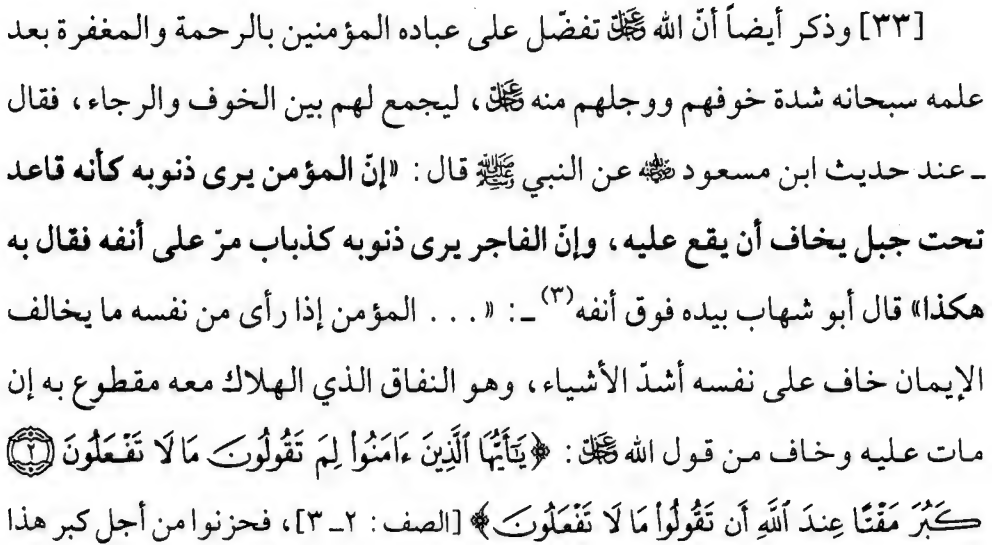 [٣٣] وذكر أيضاً أنّ الله ﷻ تفضّل على عباده المؤمنين بالرحمة والمغفرة بعد
علمه سبحانه شدة خوفهم ووجلهم منه ﷻ، ليجمع لهم بين الخوف والرجاء، فقال
ـ عند حديث ابن مسعود رضي الله عنه عن النبي ﷺ قال: «إنّ المؤمن يرى ذنوبه كأنه قاعد
تحت جبل يخاف أن يقع عليه، وإنّ الفاجر يرى ذنوبه كذباب مرّ على أنفه فقال به
هكذا» قال أبو شهاب بيده فوق أنفه(٣) ـ: «... المؤمن إذا رأى من نفسه ما يخالف
الإيمان خاف على نفسه أشدّ الأشياء، وهو النفاق الذي الهلاك معه مقطوع به إن
مات عليه وخاف من قول الله ﷻ: ﴿يَٰٓأَيُّهَا ٱلَّذِينَ ءَامَنُواْ لِمَ تَقُولُونَ مَا لَا تَفْعَلُونَ ٢
كَبُرَ مَقْتًا عِندَ ٱللَّهِ أَن تَقُولُواْ مَا لَا تَفْعَلُونَ﴾ [الصف: ٢ـ ٣]، فحزنوا من أجل كبر هذا